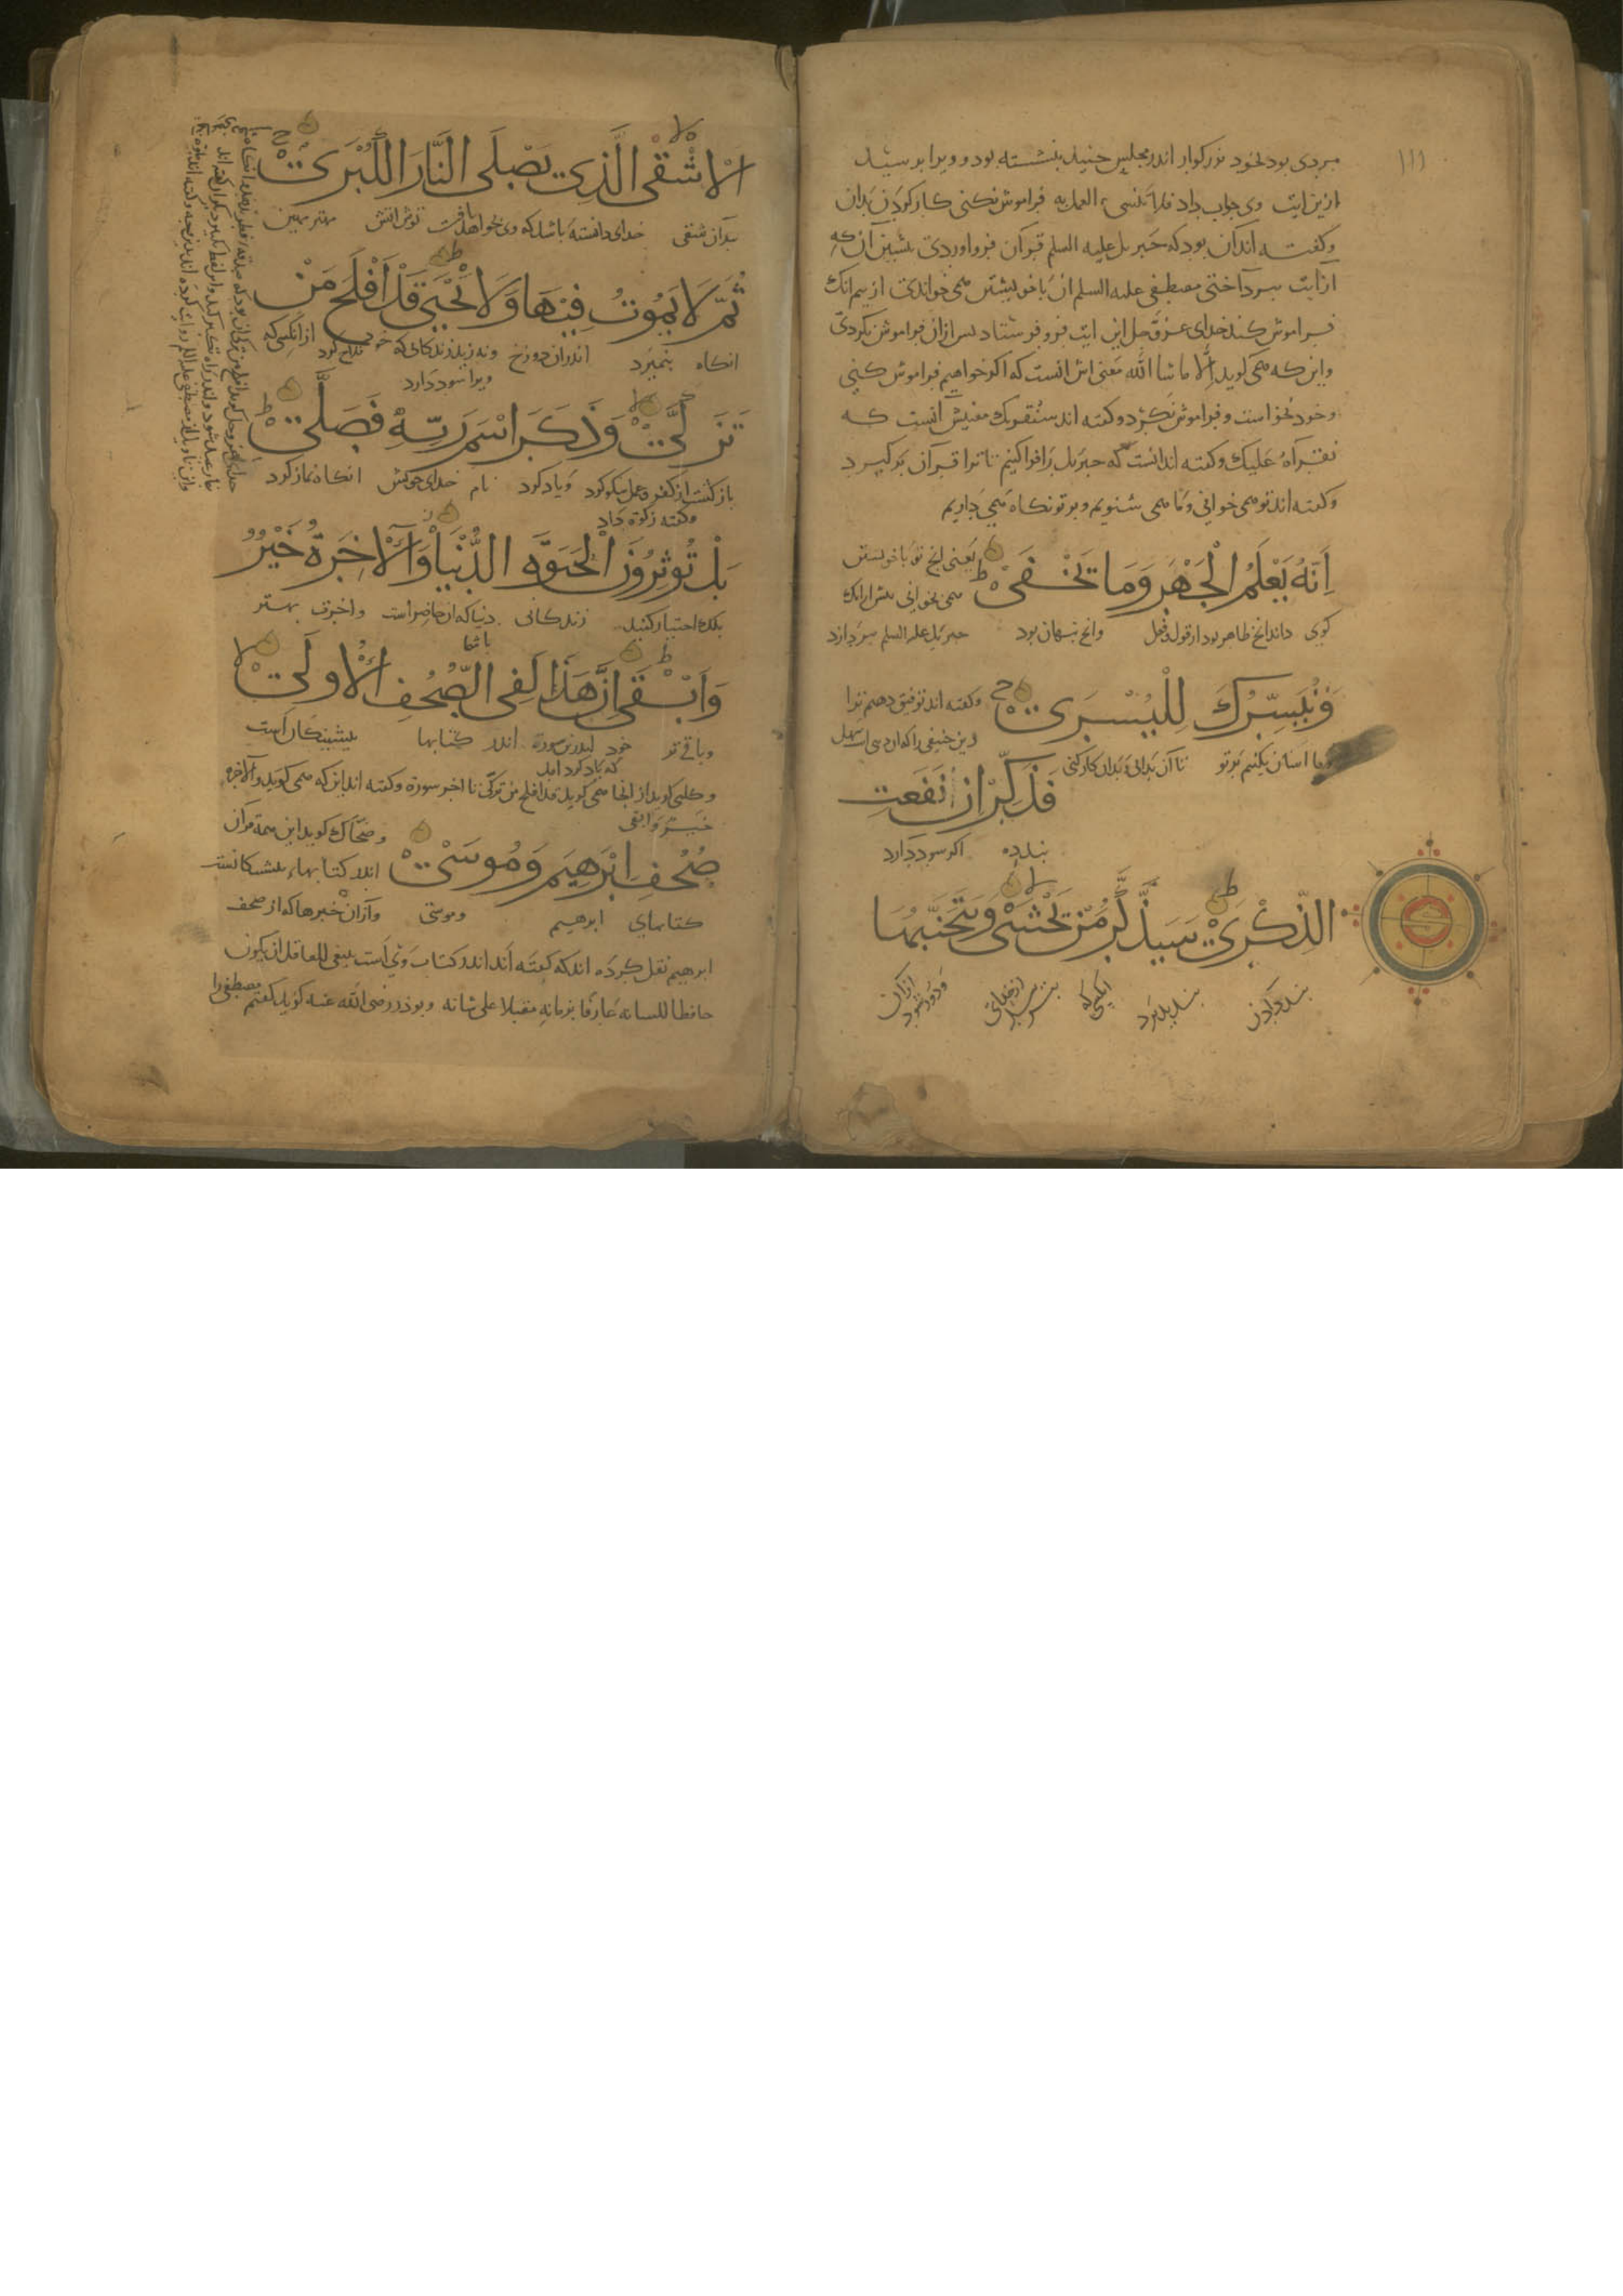 ١١١
مردی بود بخرد بزرکوار اندر مجلس جنید بنشسته بود و ویرا برسید
ازین ایت وی جواب داد فلا تنسی العمل به فراموش نکنی کار کردن بدان
وکفته اند آن بود که جبریل علیه السلم قران فرو اوردی بیشین آنکه
از ایت ببرداختی مصطفی علیه السلم آن با خویشتن همی خواندی از بیم انک
فراموش کند خدای عز وجل این ایت فرو فرستاد بس ازان فراموش نکردی
واین که همی کوید الا ما شا الله معنی اش انست که اکر خواهیم فراموش کنی
وخود نخواست وفراموش نکرد وکفته اند سنقریک معنیش انست که
نقرآه علیک وکفته اند انست که جبریل را فرا کنیم تا ترا قرآن بر کیرد
وکفته اند تو همی خوانی وما همی شنویم وبر تو نکاه همی داریم
اِنَّهُ یَعْلَمُ الْجَهْرَ وَمَا یَخْفَیٰ یعنی انج تو با خویشتن
همی خوانی بیش ازانک
کوی داند انج ظاهر بود از قول وفعل وانج بنهان بود جبریل علیه السلم ببردازد
وَنُیَسِّرُكَ لِلْیُسْرَیٰ وکفته اند توفیق دهیم ترا
دین حنیفی را که آن دینی است سهل
وما اسان بکنیم بر تو تا آن بدانی وبدان کار کنی
فَذَكِّرْ اِنْ نَفَعَتِ
بند ده اکر سود دارد
الذِّكْرَیٰ سَیَذَّكَّرُ مَنْ یَخْشَیٰ وَیَتَجَنَّبُهَا
بند دادن بند بذیرد انکسی که بترسد از خدای ودور شود ازان
الْاَشْقَی الَّذِی یَصْلَی النَّارَ الْكُبْرَیٰ
بدان شقی خدای دانسته باشد که وی خواهد یافت توش اتش مهترمهین
ثُمَّ لَا یَمُوتُ فِیْهَا وَلَا یَحْیَیٰ قَدْ اَفْلَحَ مَنْ
انکاه بنمیرد اندران دوزخ ونه زید زندکانی که ویرا سود دارد فلاح کرد ازانکسی که
تَزَكَّیٰ وَذَكَرَ اسْمَ رَبِّهِ فَصَلَّیٰ
باز کشت از کفر وعمل نیکو کرد ویاد کرد نام خدای خویش انکاه نماز کرد
وکفته زکوة داد
بَلْ تُوثِرُونَ الْحَیَوةَ الدُّنْیَا وَالْاٰخِرَةُ خَیْرٌ
بلک اختیار کنید زندکانی دنیا که آن حاضر است واخرت بهتر
باشما
وَاَبْقَیٰ اِنَّ هَذَا لَفِی الصُّحُفِ الْاُولَیٰ
وباقی تر خود اندرین سورة اندر کتابها بیشینکان است
که یاد کرد امد
وکلبی کوید از انجا همی کوید قد افلح من تزکی تا اخر سورة وکفته اند این که همی کوید والاخرة
خیر وابقی
صُحُفِ اِبْرَهِیمَ وَمُوسَیٰ وضحاک کوید این همه قران
اندر کتابهاء بیشینکانست
کتابهای ابرهیم وموسی وازان خبرها که از صحف
ابرهیم نقل کرده اند که کفته اند اندر کتاب وی است ینبغی للعاقل ان یکون
حافظا للسانه عارفا بزمانه مقبلا علی شانه وبوذر رضی الله عنه کوید کفتم مصطفی را